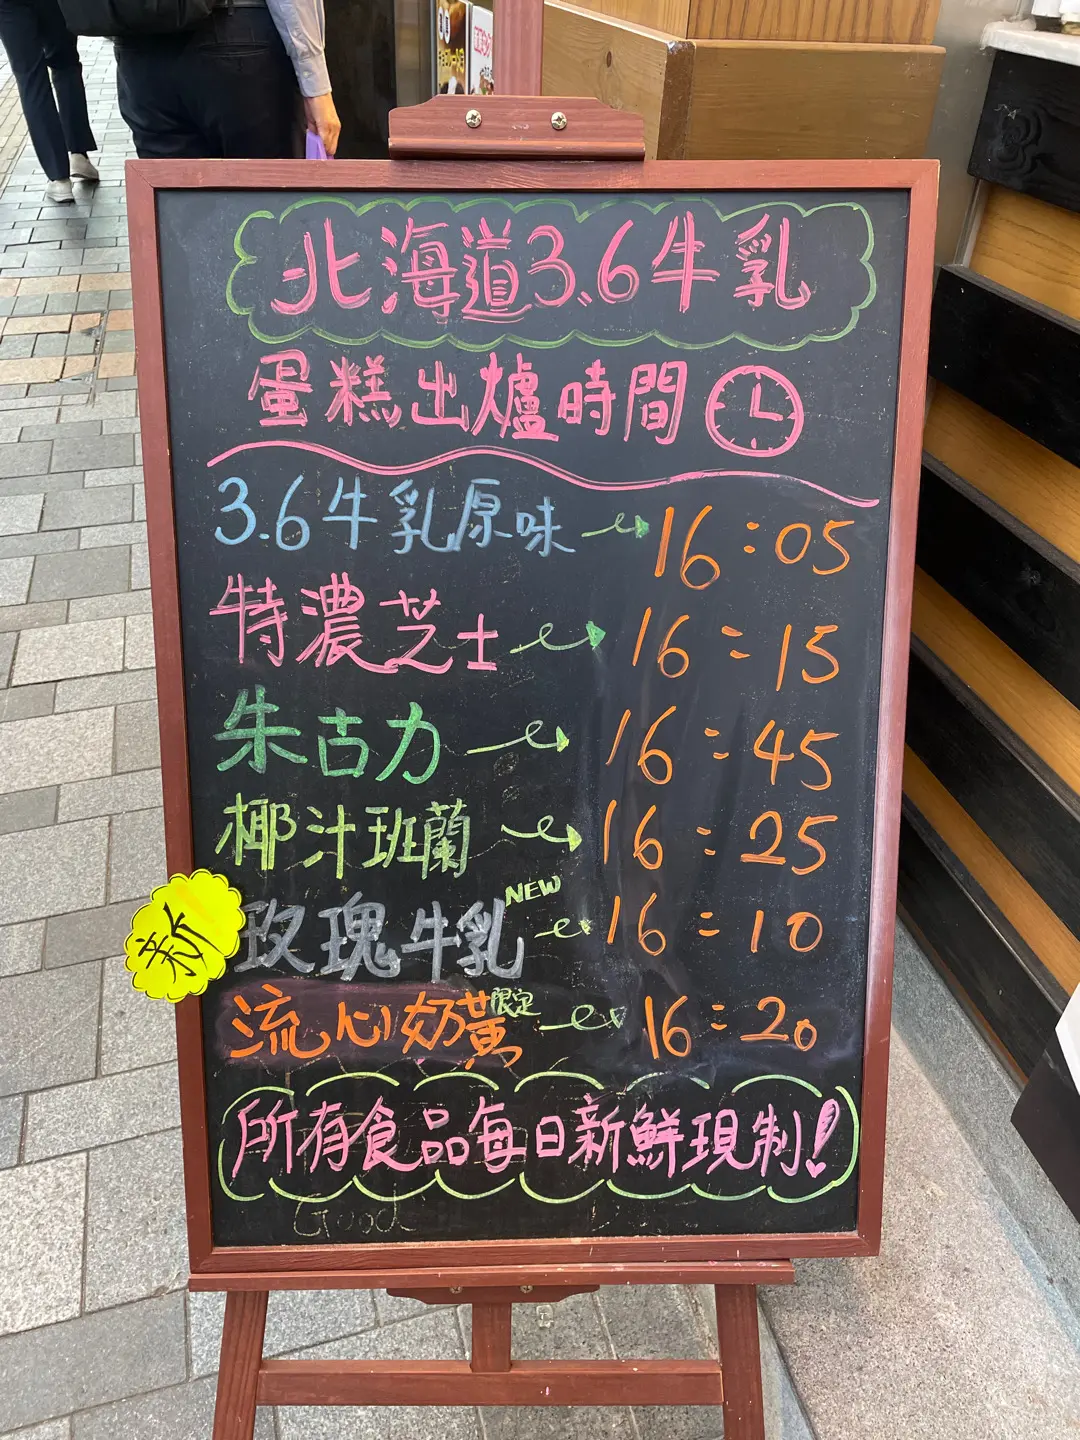 北海道3.6牛乳
蛋糕出爐時間
3.6牛乳原味 16:05
特濃芝士 16:15
朱古力 16:45
椰汁班蘭 16:25
新 玫瑰牛乳 NEW 16:10
流心奶黃 限定 16:20
所有食品每日新鮮現制!
Good